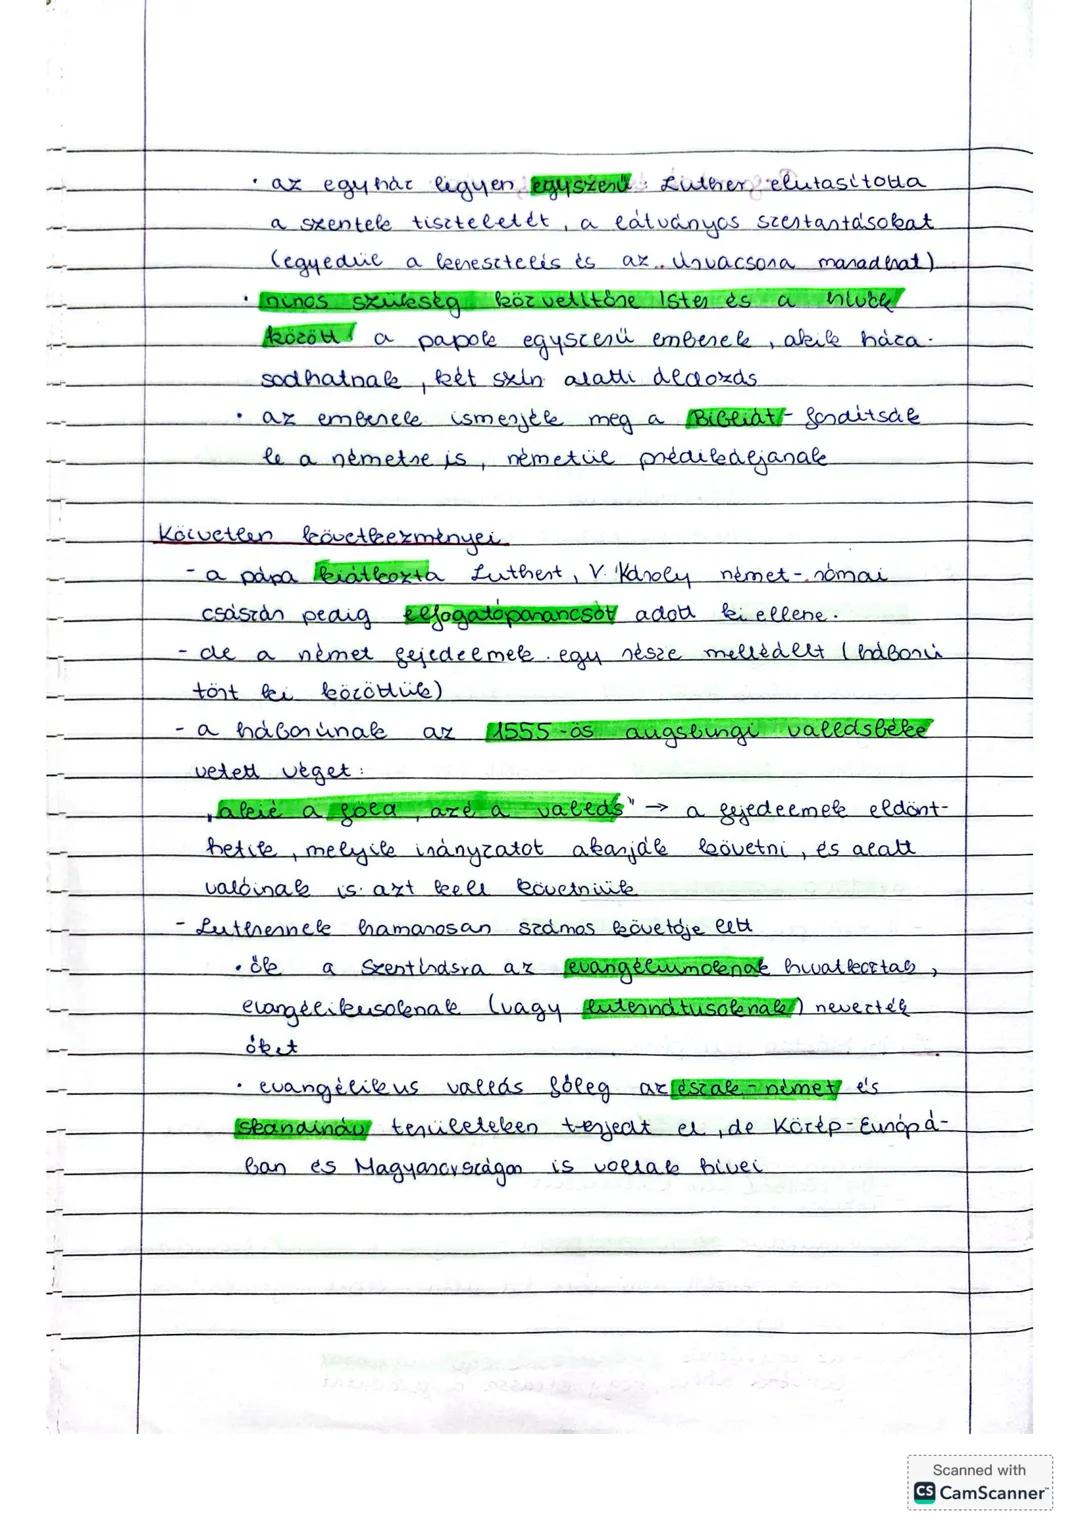 · az egyház légyen egyszerű: Luther elutasította
a szentek tiszteletét, a látványos szertartásokat
(egyedül a keresztelés és az Úrvacsora maradhat)
· nincs szükség közvetítőre Isten és a hívők
között: a papok egyszerű emberek, akik háza-
sodhatnak, két szín alatti áldozás
· az emberek ismerjék meg a Bibliát - fordítsák
le a németre is, németül prédikáljanak
Közvetlen következményei
- a pápa kiátkozta Luthert, V. Károly német-római
császár pedig elfogatóparancsot adott ki ellene.
- de a német fejedelmek egy része mellédállt (háború
tört ki közöttük)
- a háborúnak az 1555-ös augsburgi vallásbéke
vetett véget:
„akié a föld, azé a vallás" → a fejedelmek eldönt-
hetik, melyik irányzatot akarják követni, és alatt
valóinak is azt kell követniük
- Luthernek hamarosan számos követője lett
· ők a Szentírásra az evangéliumoknak hivatkoztak,
evangélikusoknak (vagy lutheránusoknak) nevezték
őket
· evangélikus vallás főleg az észak-német és
skandináv területeken terjedt el, de Közép-Európá-
ban és Magyarországon is voltak hívei
Scanned with
CS CamScanner